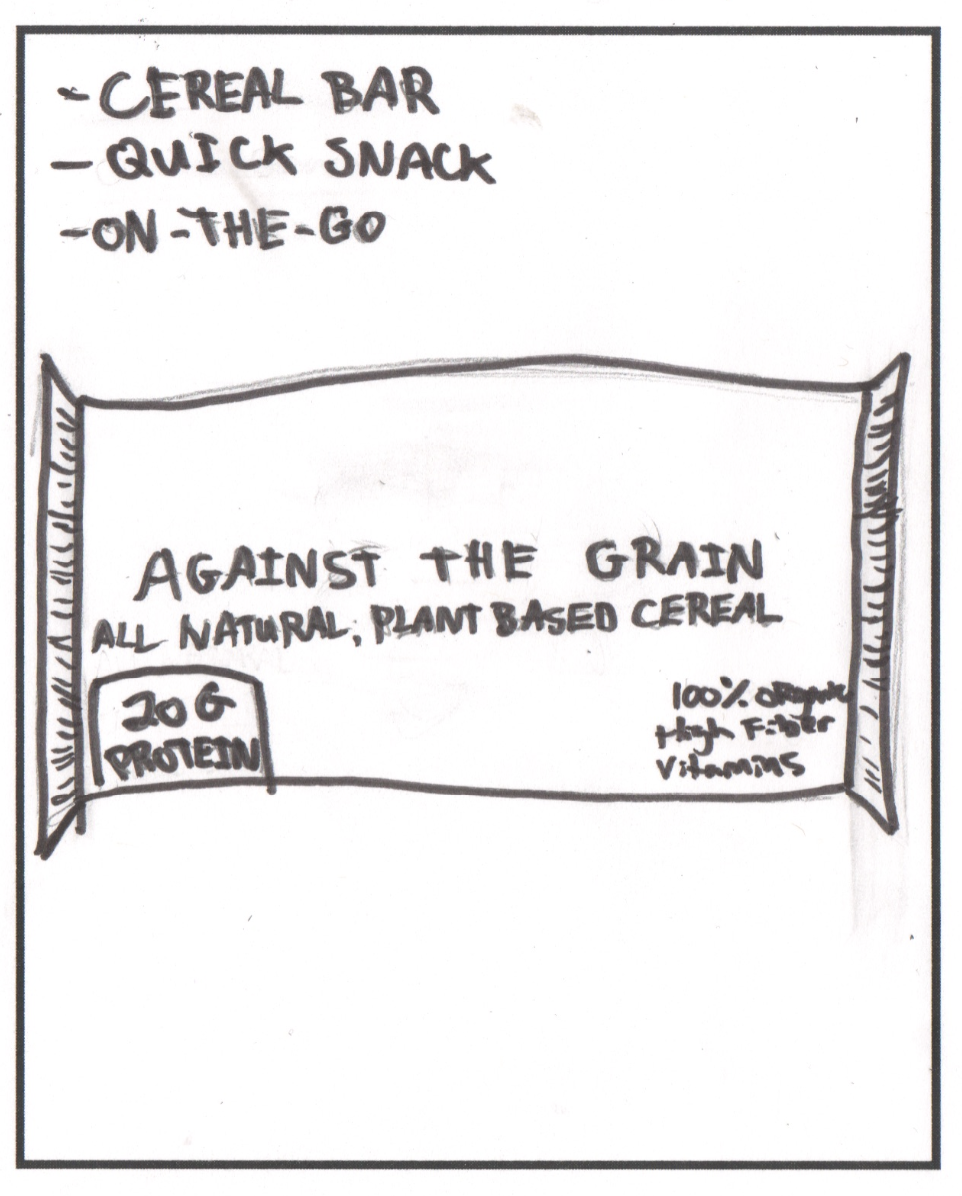 - CEREAL BAR
- QUICK SNACK
- ON-THE-GO
AGAINST THE GRAIN
ALL NATURAL, PLANT BASED CEREAL
20G
PROTEIN
100% ORganic
High Fiber
Vitamins